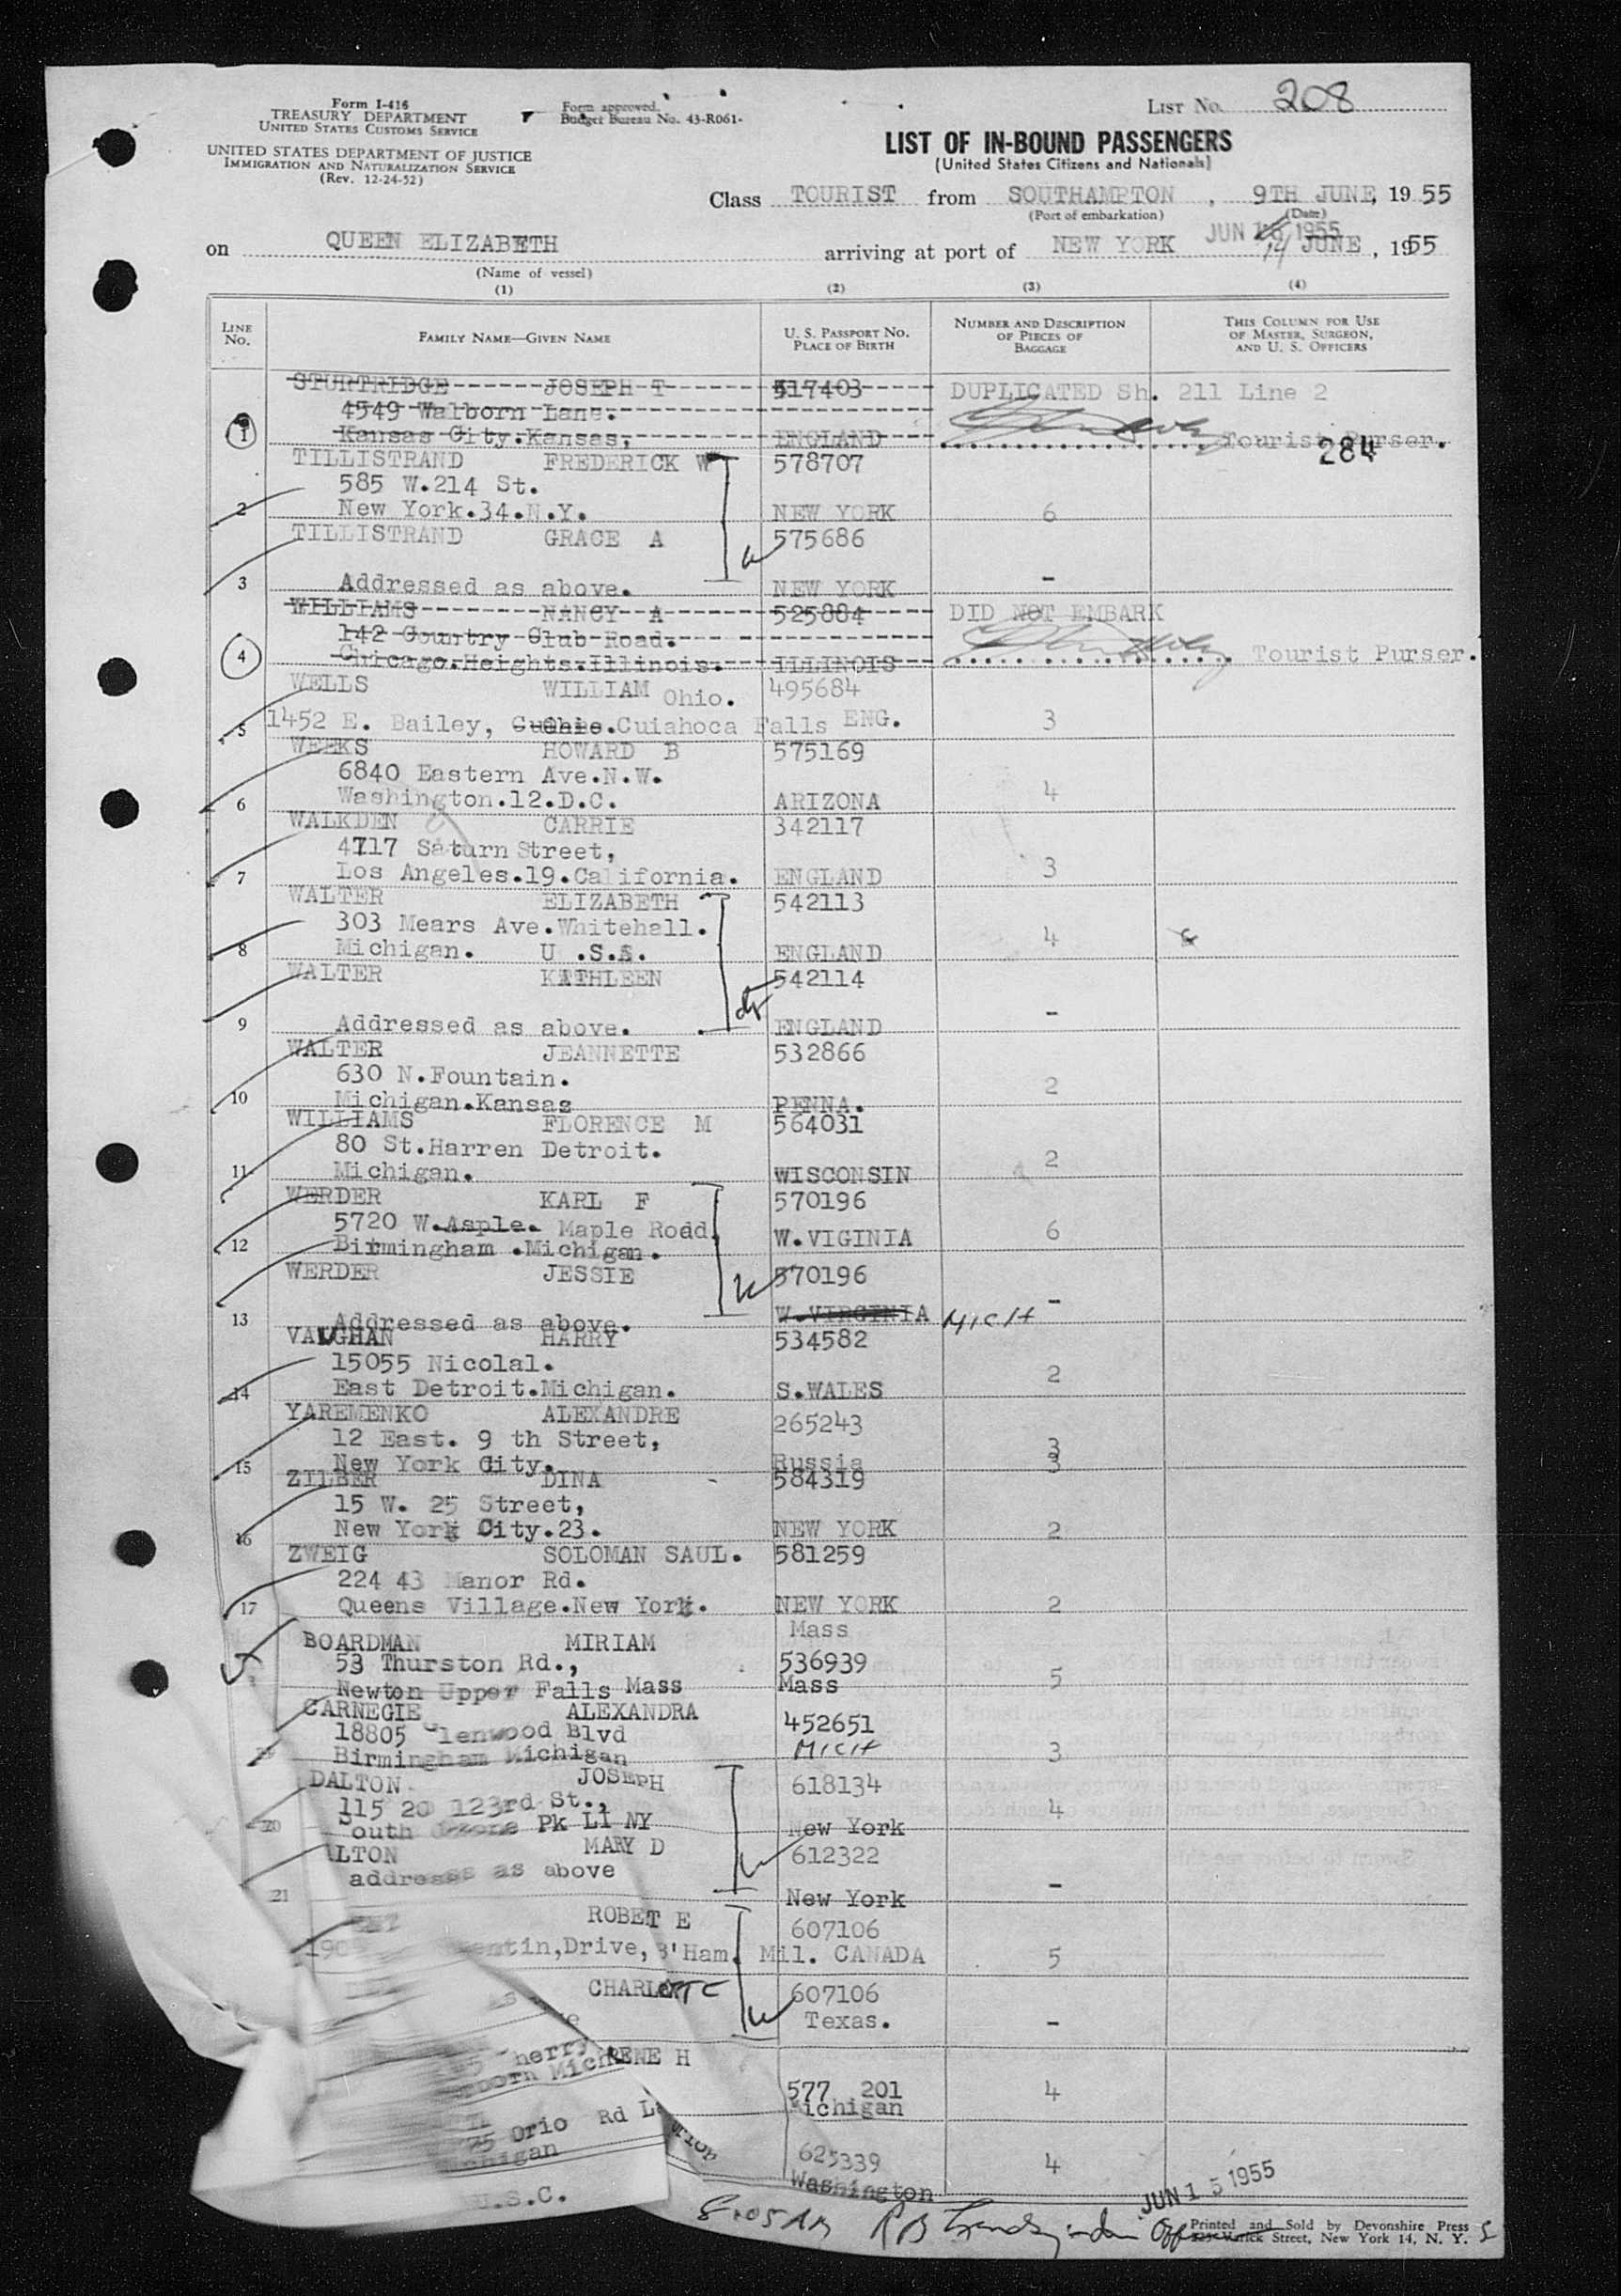 Form I-416
TREASURY DEPARTMENT
UNITED STATES CUSTOMS SERVICE
UNITED STATES DEPARTMENT OF JUSTICE
IMMIGRATION AND NATURALIZATION SERVICE
(Rev. 12-24-52)
Form approved.
Budget Bureau No. 43-R061-
LIST No. 208
LIST OF IN-BOUND PASSENGERS
(United States Citizens and Nationals)
Class TOURIST from SOUTHAMPTON, 9TH JUNE, 1955
(Port of embarkation) (Date)
JUN 1 1955
on QUEEN ELIZABETH arriving at port of NEW YORK 14 JUNE, 1955
(Name of vessel)
(1) (2) (3) (4)
LINE No.
FAMILY NAME—GIVEN NAME
U. S. PASSPORT No. PLACE OF BIRTH
NUMBER AND DESCRIPTION OF PIECES OF BAGGAGE
THIS COLUMN FOR USE OF MASTER, SURGEON, AND U. S. OFFICERS
STURTRIDGE JOSEPH T 517403 DUPLICATED Sh. 211 Line 2
4549 Walborn Lane.
1 Kansas City.Kansas, ENGLAND Tourist Purser.
284
TILLISTRAND FREDERICK W 578707
585 W.214 St.
2 New York.34.N.Y. NEW YORK 6
TILLISTRAND GRACE A 575686
3 Addressed as above. NEW YORK -
WILLIAMS NANCY A 525884 DID NOT EMBARK
142 Country Club Road.
4 Chicago.Heights.Illinois. ILLINOIS Tourist Purser.
WELLS WILLIAM Ohio. 495684
5 1452 E. Bailey, Cuiahoca Falls ENG. 3
WEEKS HOWARD B 575169
6840 Eastern Ave.N.W.
6 Washington.12.D.C. ARIZONA 4
WALKDEN CARRIE 342117
4717 Saturn Street,
7 Los Angeles.19.California. ENGLAND 3
WALTER ELIZABETH 542113
303 Mears Ave.Whitehall.
8 Michigan. U .S.A. ENGLAND 4
WALTER KATHLEEN 542114
9 Addressed as above. ENGLAND -
WALTER JEANNETTE 532866
630 N.Fountain.
10 Michigan.Kansas PENNA. 2
WILLIAMS FLORENCE M 564031
80 St.Harren Detroit.
11 Michigan. WISCONSIN 2
WERDER KARL F 570196
5720 W.Asple. Maple Road W.VIGINIA 6
12 Birmingham .Michigan.
WERDER JESSIE 570196
13 Addressed as above. W.VIRGINIA MICH -
VAUGHAN HARRY 534582
15055 Nicolal.
14 East Detroit.Michigan. S.WALES 2
YAREMENKO ALEXANDRE 265243
12 East. 9 th Street, 3
15 New York City. Russia 3
ZILBER DINA 584319
15 W. 25 Street,
16 New York City.23. NEW YORK 2
ZWEIG SOLOMAN SAUL. 581259
224 43 Manor Rd.
17 Queens Village.New York. NEW YORK 2
Mass
BOARDMAN MIRIAM
53 Thurston Rd., 536939
Newton Upper Falls Mass Mass 5
CARNEGIE ALEXANDRA
18805 lenwood Blvd 452651
Birmingham Michigan MICH 3
DALTON JOSEPH 618134
115 20 123rd St., 4
20 outh Pk LI NY New York
ALTON MARY D 612322
address as above
21 New York -
ROBET E 607106
190 entin,Drive,B'Ham. Mil. CANADA 5
CHARLOTTE 607106
Texas. -
herry RENE H
born Mich
577 201 4
Michigan
75 Orio Rd
higan
625339 4
Washington
U.S.C.
JUN 15 1955
8.05 AM
Printed and Sold by Devonshire Press
Varick Street, New York 14, N. Y.